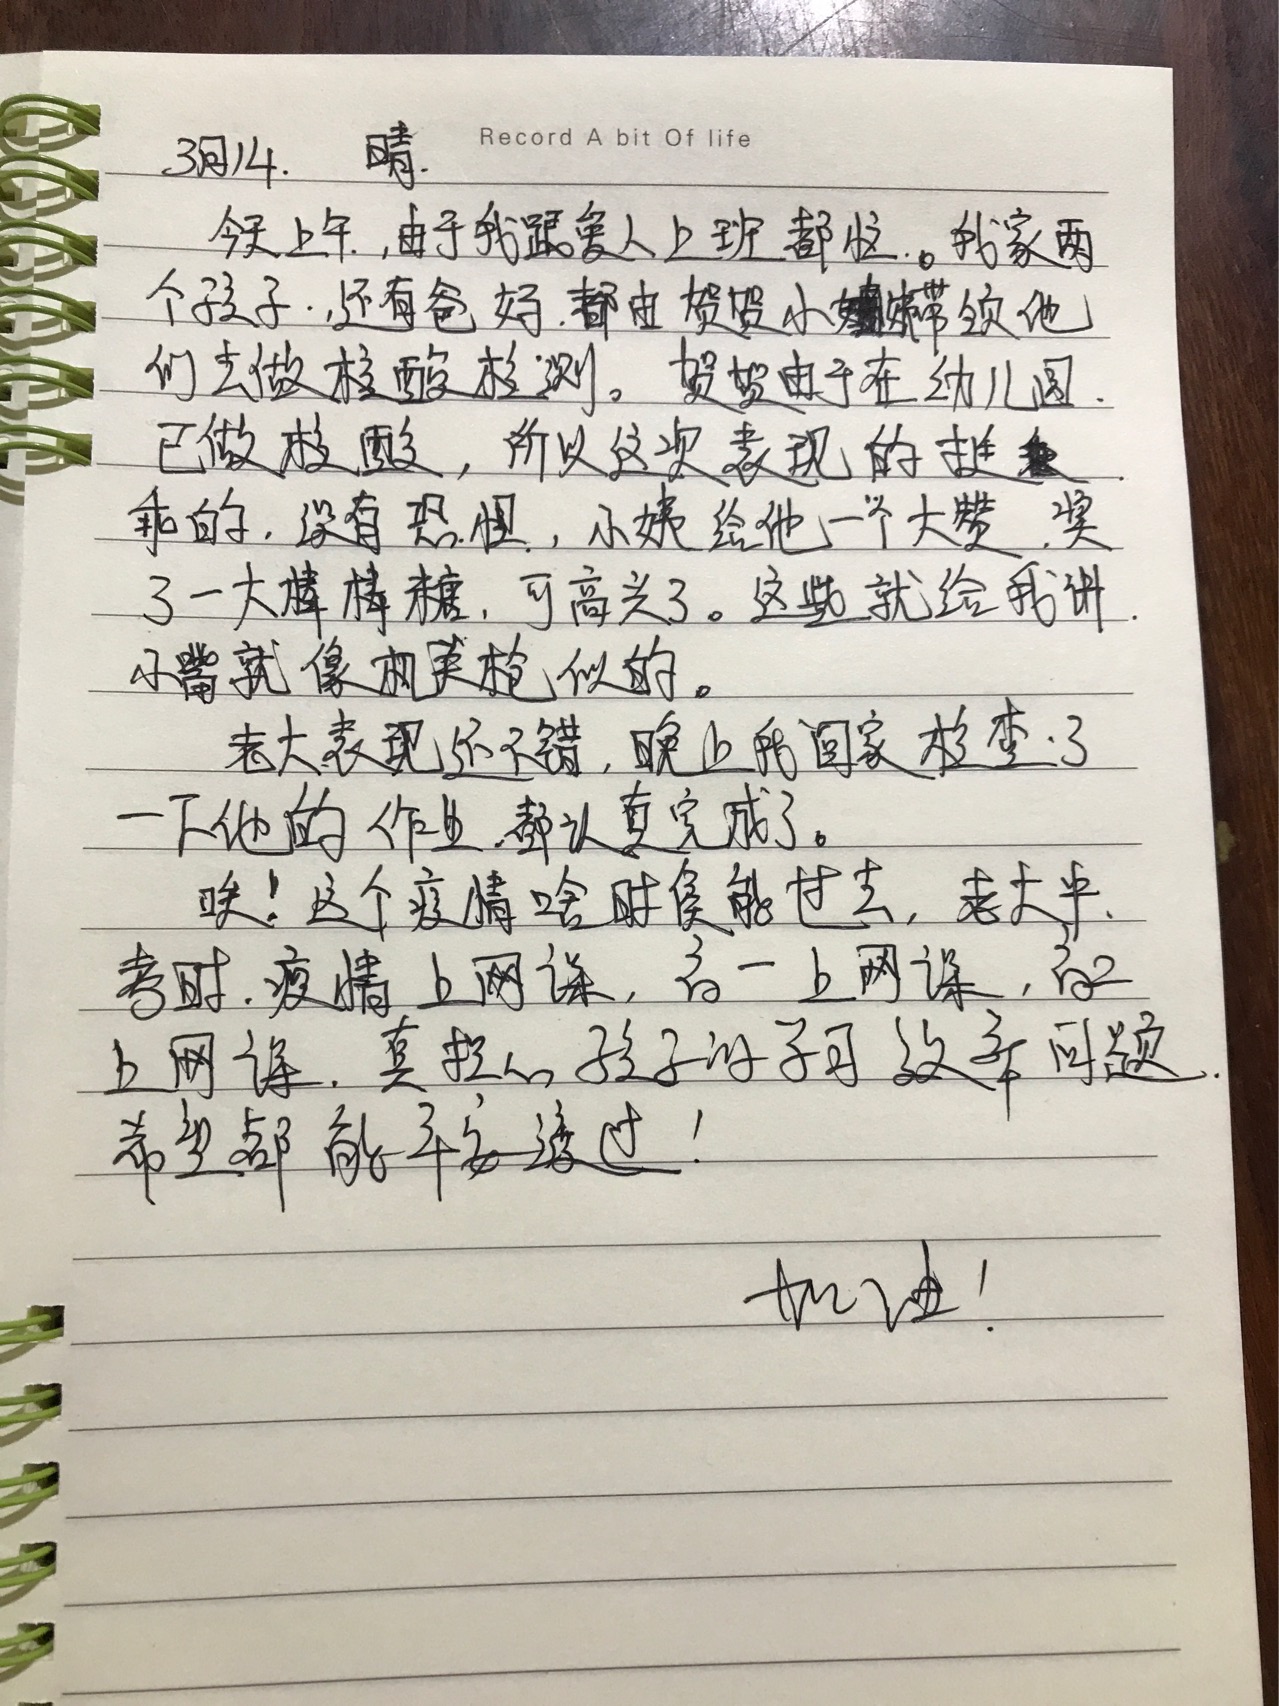 Record A bit Of life
3月14. 晴.
今天上午,由于我跟爱人上班都忙。我家两
个孩子,还有爸妈.都由贺贺小姨带领他
们去做核酸检测。贺贺由于在幼儿园.
已做核酸,所以这次表现的挺
乖的.没有恐惧,小姨给他一个大赞.奖
了一大棒棒糖,可高兴了。这些就给我讲.
小嘴就像机关枪似的。
老大表现还不错,晚上我回家检查了
一下他的作业.都认真完成了。
唉!这个疫情啥时候能过去,老大中.
考时.疫情上网课,高一上网课,高二
上网课.真担心孩子的学习效率问题.
希望都能平安渡过!
加油!